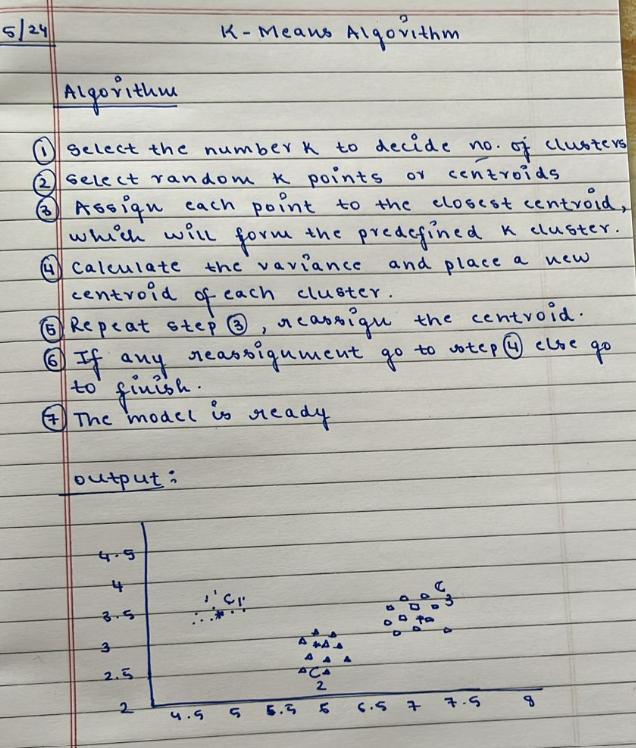 5/24
K-Means Algorithm
Algorithm
① Select the number K to decide no. of clusters
② Select random K points or centroids
③ Assign each point to the closest centroid,
which will form the predefined K cluster.
④ Calculate the variance and place a new
centroid of each cluster.
⑤ Repeat step ③, reassign the centroid.
⑥ If any reassignment go to step ④ else go
to finish.
⑦ The model is ready
output:
4.5
4
3.5
3
2.5
2
C1
C2
C3
4.5 5 5.5 5 6.5 7 7.5 8